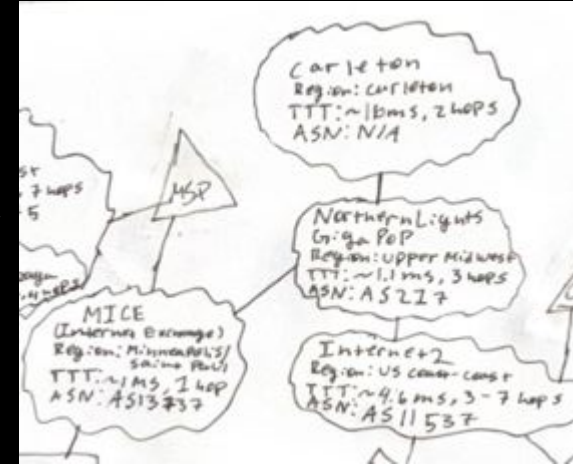 Carleton
Region: Carleton
TTT: ~16ms, 2 hops
ASN: N/A
7 hops
MSP
Northern Lights
GigaPoP
Region: Upper Midwest
TTT: ~1.1 ms, 3 hops
ASN: AS217
MICE
(Internet Exchange)
Region: Minneapolis/
Saint Paul
TTT: ~1ms, 1 hop
ASN: AS13737
Internet2
Region: US coast-coast
TTT: ~4.6 ms, 3-7 hops
ASN: AS11537